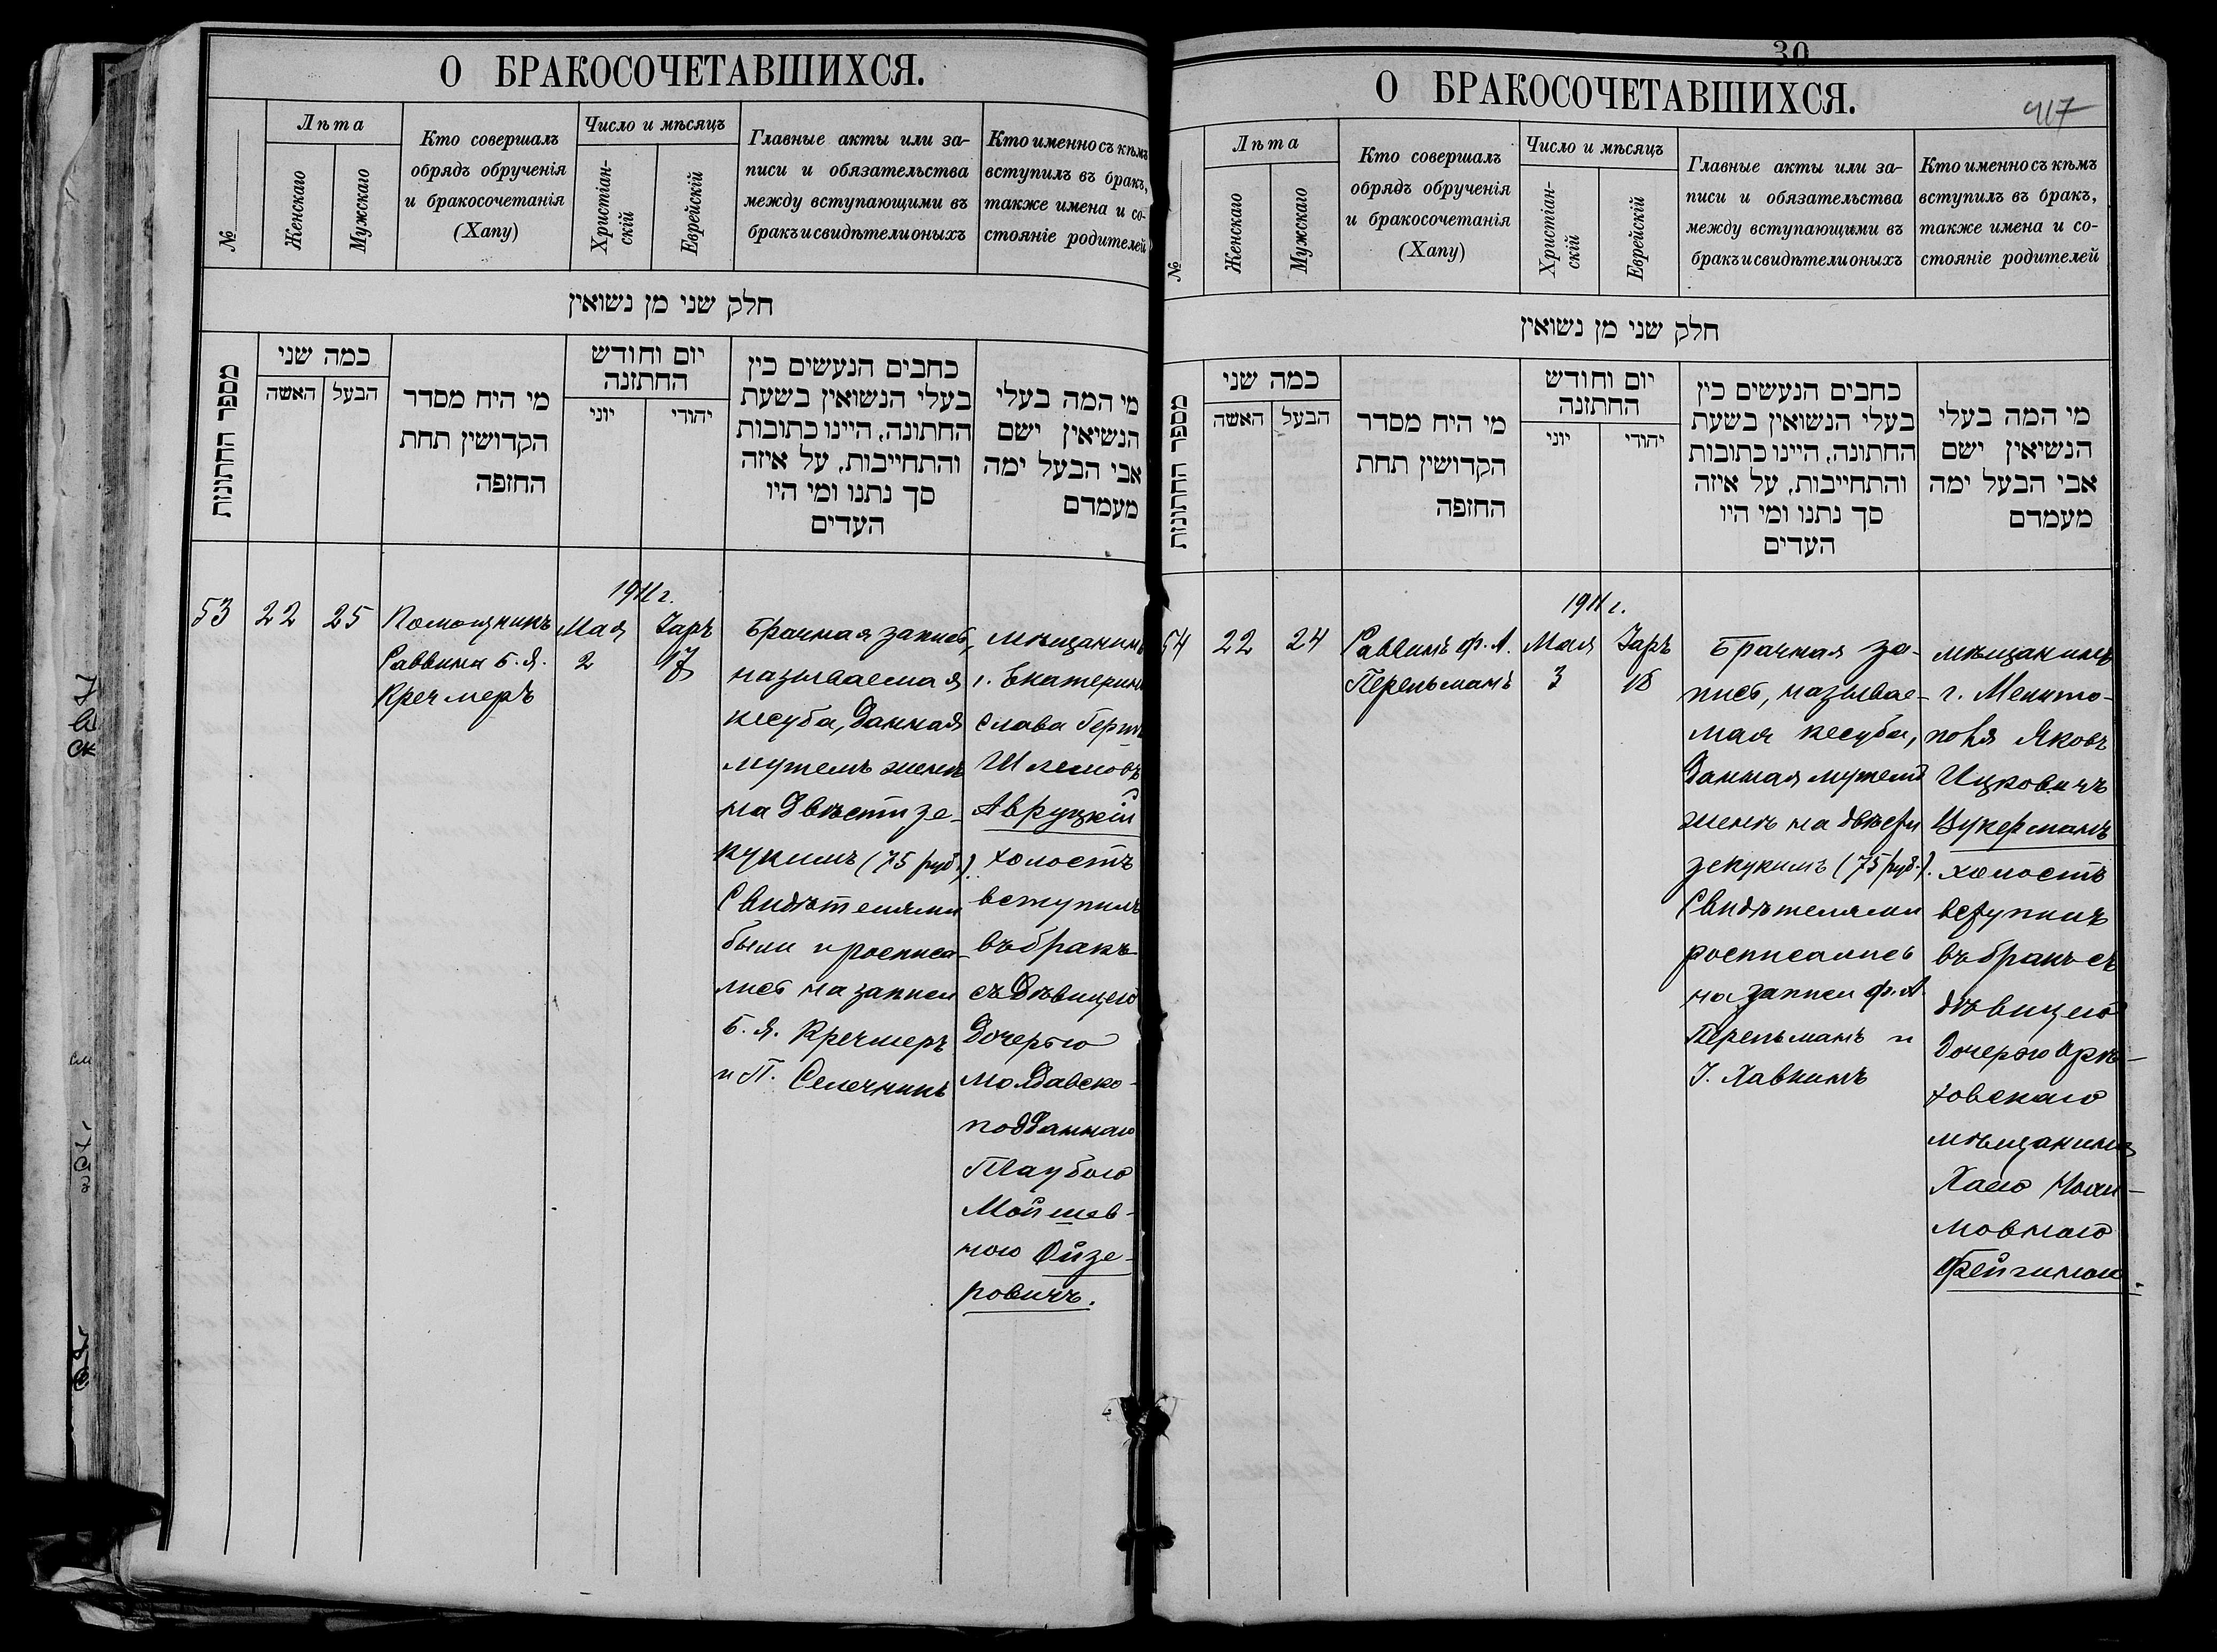 О БРАКОСОЧЕТАВШИХСЯ.
№
Лѣта
Женскаго
Мужскаго
Кто совершалъ
обрядъ обрученія
и бракосочетанія
(Хапу)
Число и мѣсяцъ
Христіан-
скій
Еврейскій
Главные акты или за-
писи и обязательства
между вступающими въ
бракъ и свидѣтели оныхъ
Кто именно съ кѣмъ
вступилъ въ бракъ,
также имена и со-
стояніе родителей
חלק שני מן נשואין
מספר החתונות
כמה שני
האשה
הבעל
מי היח מסדר
הקדושין תחת
החזפה
יום וחודש
החתזנה
יוני
יהודי
כחבים הנעשים כין
בעלי הנשואין בשעת
החתונה, היינו כתובות
והתחייבות, על איזה
סך נתנו ומי היו
העדים
מי המה בעלי
הנשיאין ישם
אבי הבעל ימה
מעמדם
53
22
25
Помощникъ
Раввина Б. Я.
Кречмеръ
1911 г.
Мая
2
Iаръ
17
Брачная запись,
называемая
кесуба, данная
мужемъ женѣ
на двѣсти зе-
кукимъ (75 руб.).
Свидѣтелями
были и росписа-
лись на записи
Б. Я. Кречмеръ
и П. Селечникъ
мѣщанинъ
г. Екатерино
слава
Шлемовъ
Авруцкій
холостъ
вступилъ
въ бракъ
съ дѣвицею
дочерью
молдавско-
подданнаго
Таубою
Мойшев-
ною Ойзе-
ровичъ.
30
О БРАКОСОЧЕТАВШИХСЯ.
417
№
Лѣта
Женскаго
Мужскаго
Кто совершалъ
обрядъ обрученія
и бракосочетанія
(Хапу)
Число и мѣсяцъ
Христіан-
скій
Еврейскій
Главные акты или за-
писи и обязательства
между вступающими въ
бракъ и свидѣтели оныхъ
Кто именно съ кѣмъ
вступилъ въ бракъ,
также имена и со-
стояніе родителей
חלק שני מן נשואין
מספר החתונות
כמה שני
האשה
הבעל
מי היח מסדר
הקדושין תחת
החזפה
יום וחודש
החתזנה
יוני
יהודי
כחבים הנעשים כין
בעלי הנשואין בשעת
החתונה, היינו כתובות
והתחייבות, על איזה
סך נתנו ומי היו
העדים
מי המה בעלי
הנשיאין ישם
אבי הבעל ימה
מעמדם
54
22
24
Раввинъ Ф. А.
Перельманъ
1911 г.
Мая
3
Iаръ
18
Брачная за-
пись, называе-
мая кесуба,
данная мужемъ
женѣ на двѣсти
зекукимъ (75 руб.).
Свидѣтелями
росписались
на записи Ф. А.
Перельманъ и
I. Хавкинъ
мѣщанинъ
г. Мелито-
поля Яковъ
Ицковичъ
Цукерманъ
холостъ
вступилъ
въ бракъ съ
дѣвицею
дочерью Орѣ-
ховскаго
мѣщанина
Хаею
мовною
Фейгиною.